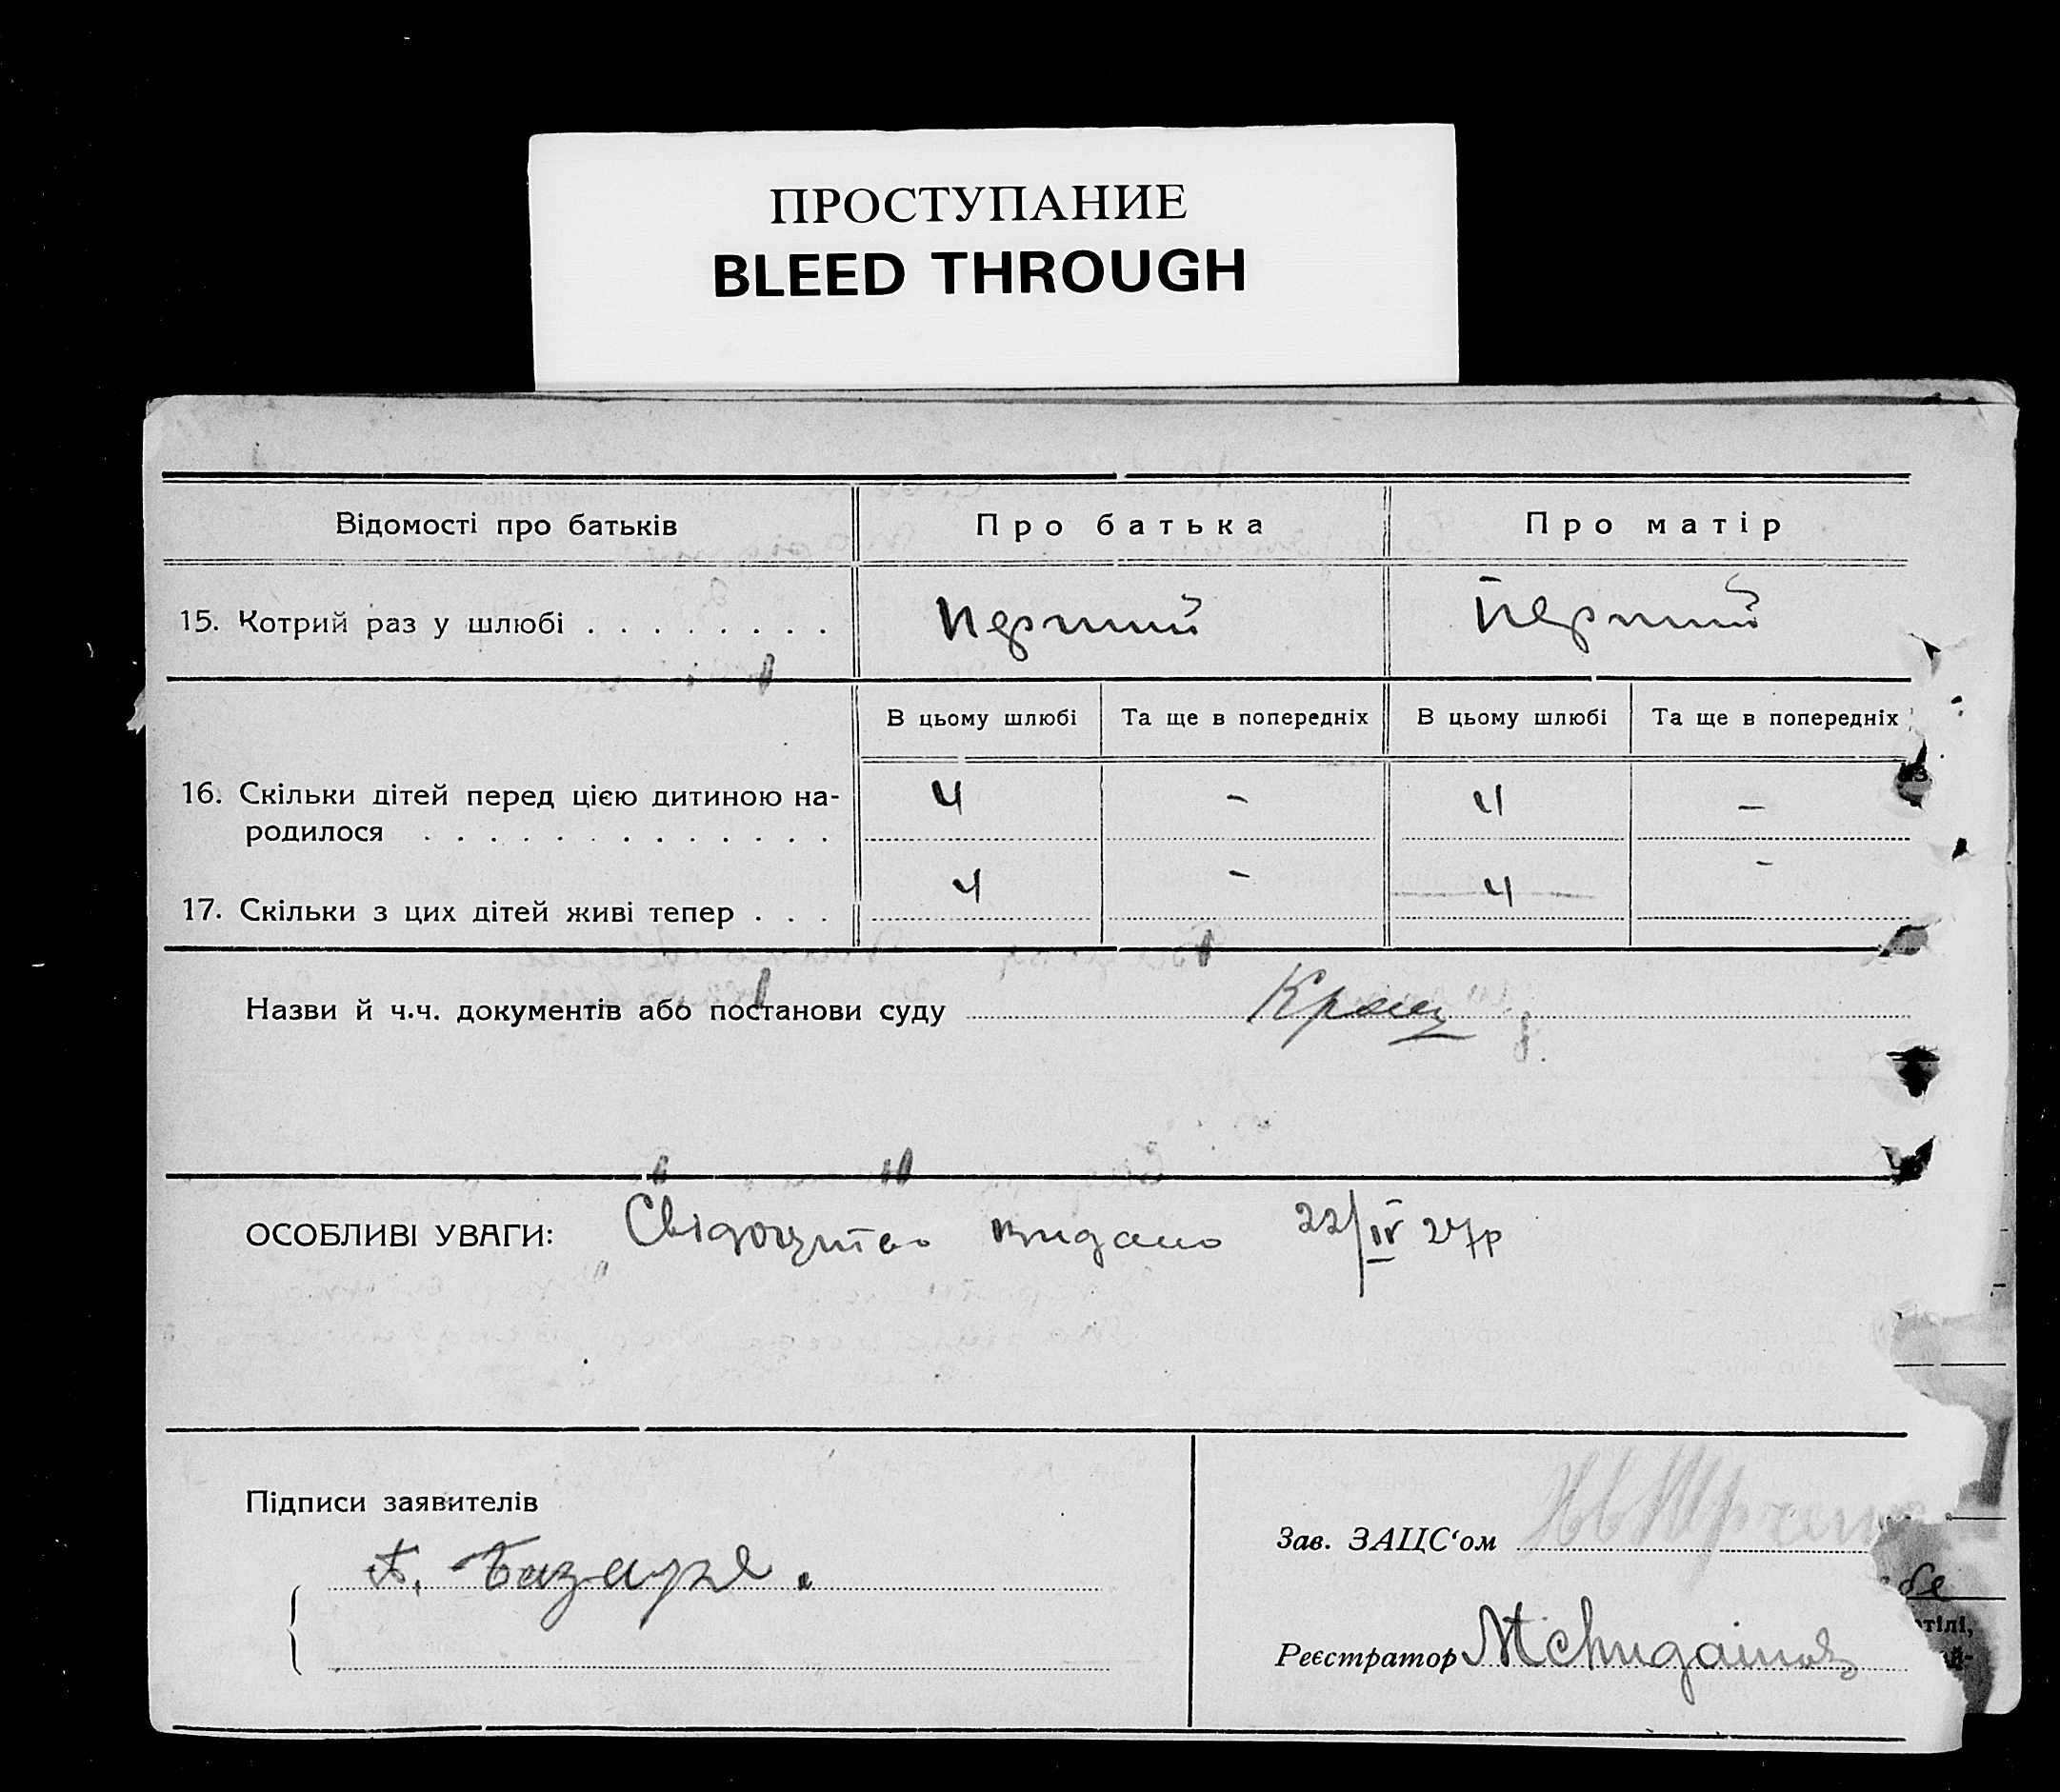 ПРОСТУПАНИЕ
BLEED THROUGH
Відомості про батьків Про батька Про матір
15. Котрий раз у шлюбі . . . . . . . . Перший Перший
В цьому шлюбі Та ще в попередніх В цьому шлюбі Та ще в попередніх
16. Скільки дітей перед цією дитиною на-
родилося . . . . . . . . . . . . . 4 - 4 -
17. Скільки з цих дітей живі тепер . . . 4 - 4 -
Назви й ч.ч. документів або постанови суду
ОСОБЛИВІ УВАГИ: Свідоцтво видано 22/IV 27р
Підписи заявителів
Зав. ЗАЦС‘ом
Реєстратор
тілі,